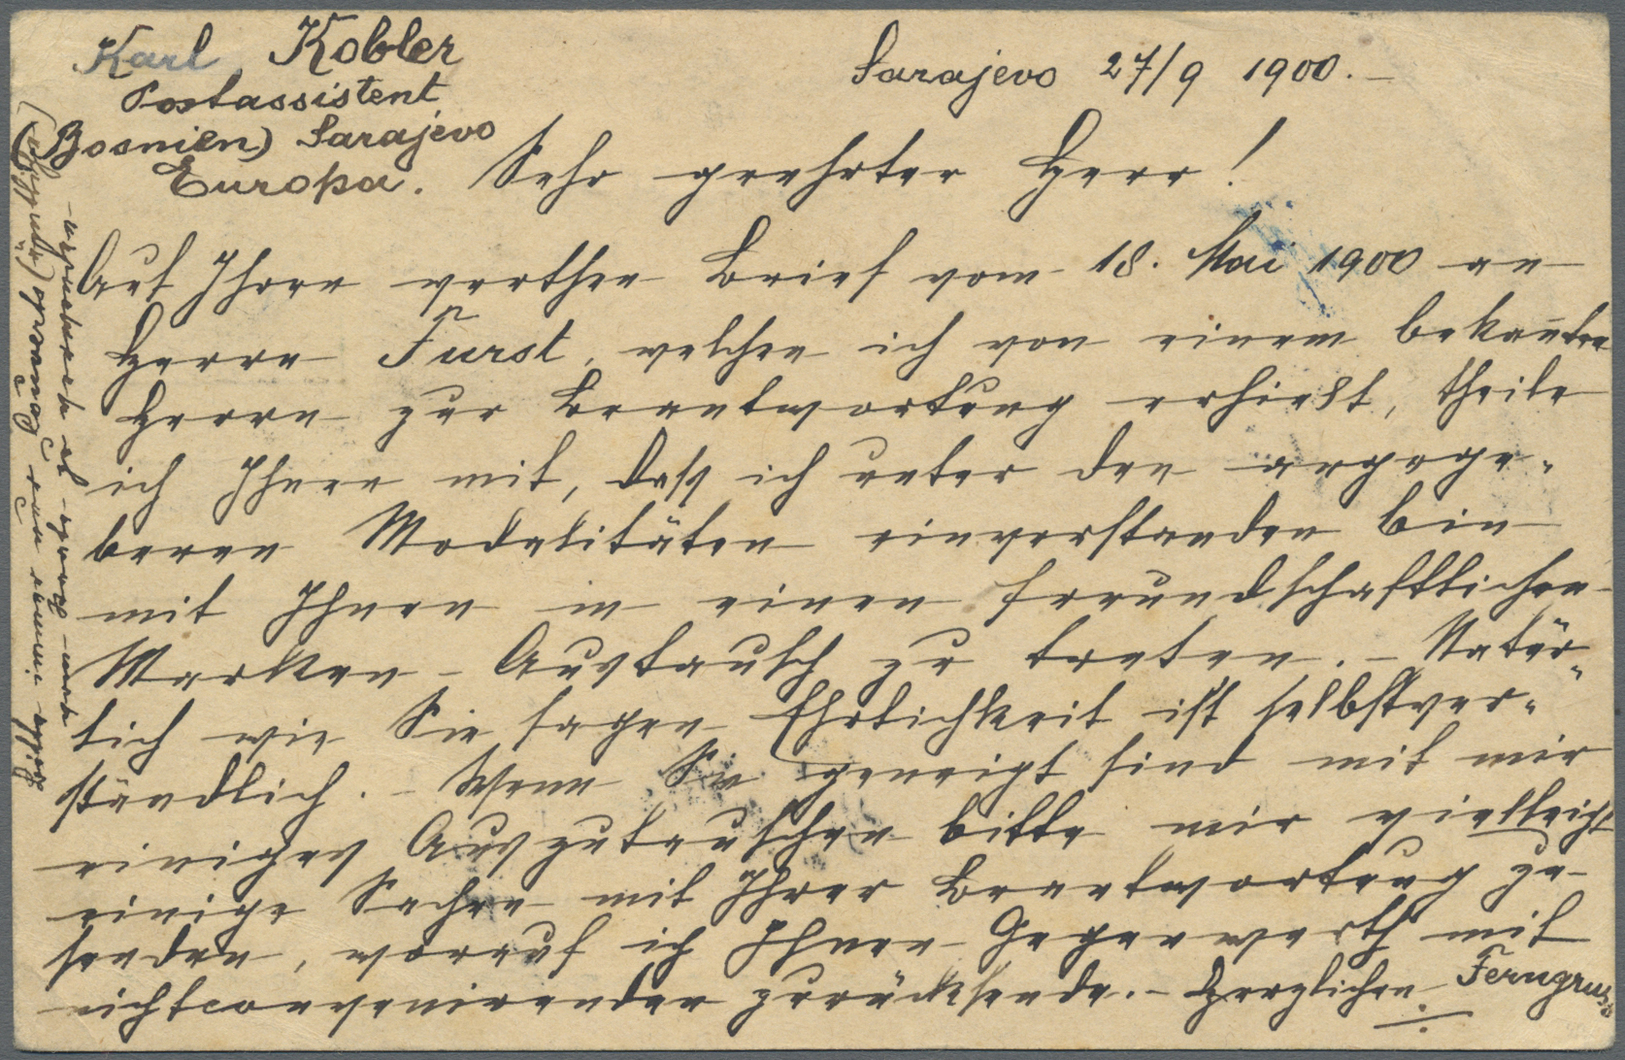 Karl Kobler
Postassistent
(Bosnien) Sarajevo
Europa.
Sarajevo 27/9 1900.–
Sehr geehrter Herr!
Auf Ihren werthen Brief vom 18. Mai 1900 an
Herrn Furst, welchen ich von einem bekannten
Herrn zur Beantwortung erhielt, theile
ich Ihnen mit, daß ich unter den angege-
benen Modalitäten einverstanden bin
mit Ihnen in einen freundschaftlichen
Marken-Austausch zu treten. – Natür-
lich wie Sie sagen Ehrlichkeit ist selbstver-
ständlich. – Wenn Sie geneigt sind mit mir
einiges Auszutauschen bitte mir vielleicht
einige Sachen mit Ihrer Beantwortung zu
senden, worauf ich Ihnen Gegenwerth mit
nichtconvenirenden zurücksende. – Herzlichen Ferngruss
Bitte immer nur